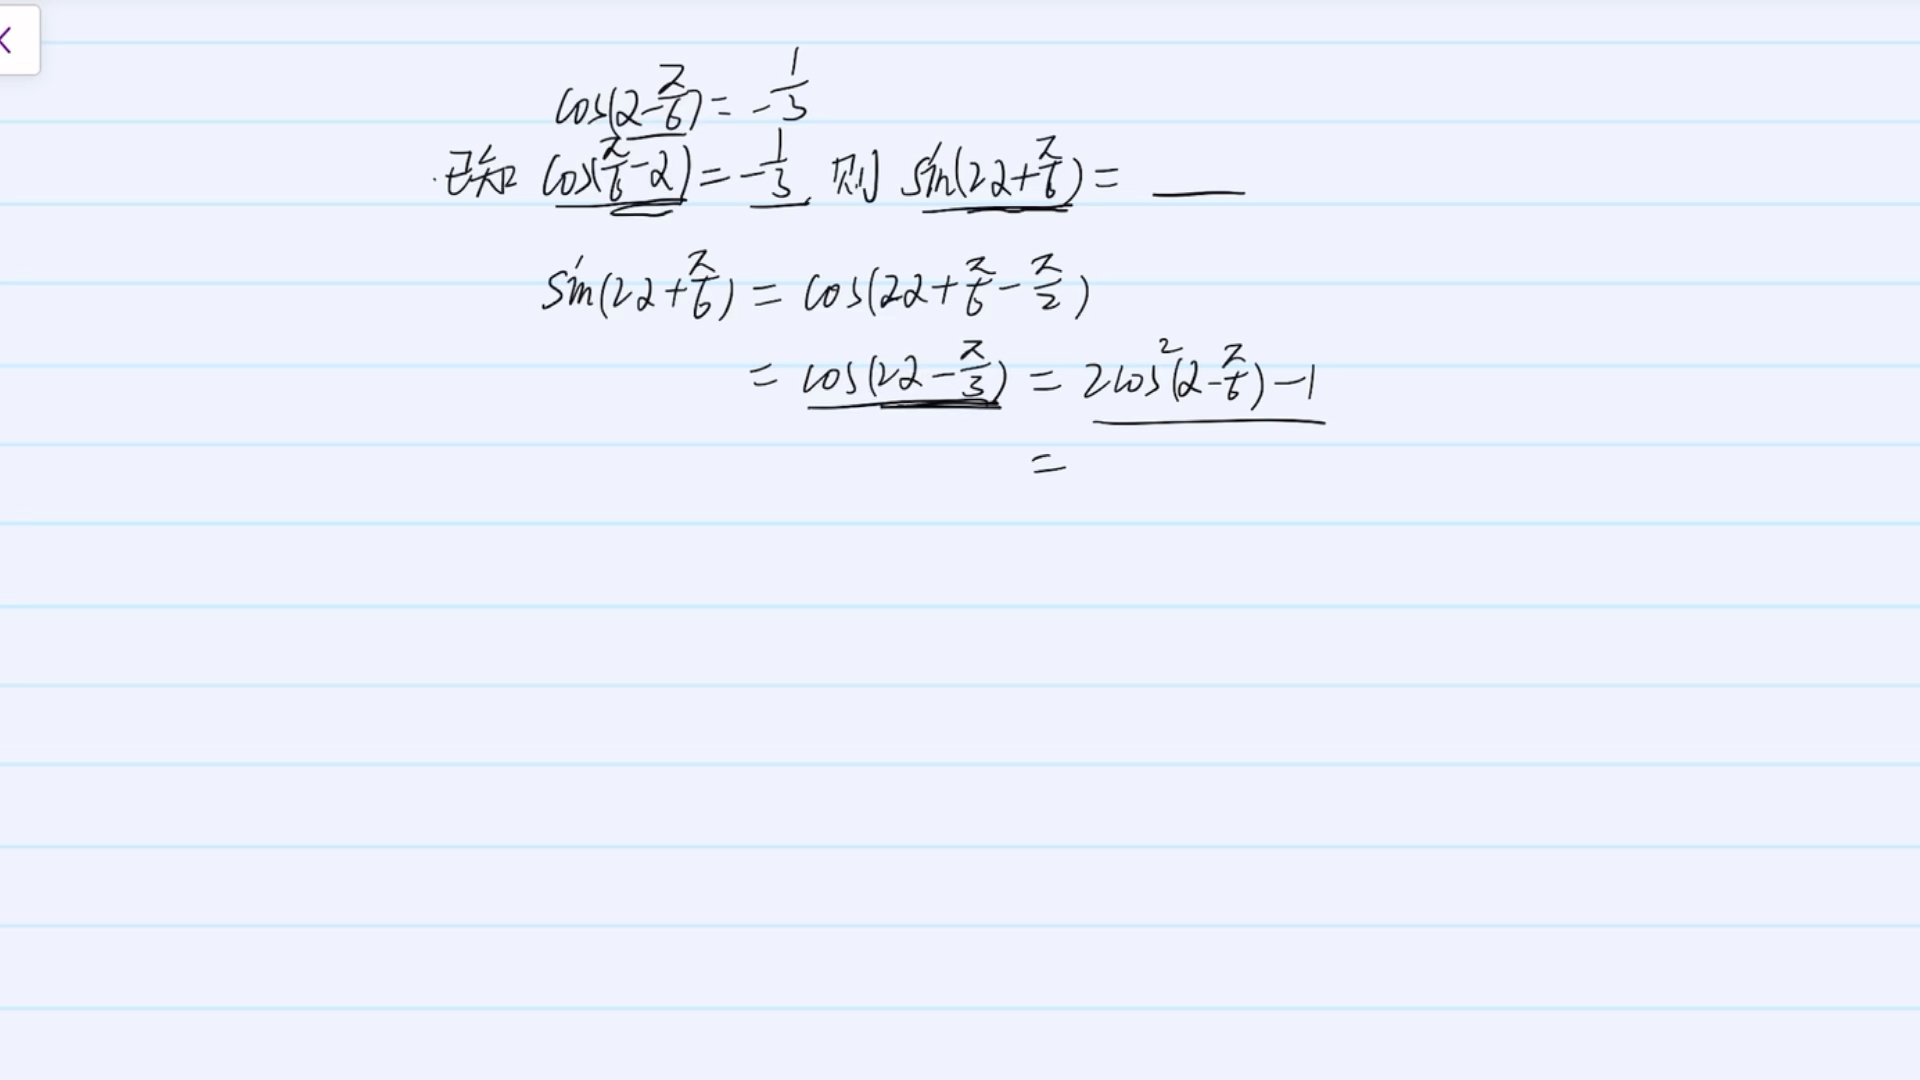 cos(α-π/6)=-1/3
已知 cos(π/6-α)=-1/3, 则 sin(2α+π/6)= ____
sin(2α+π/6) = cos(2α+π/6-π/2)
= cos(2α-π/3) = 2cos²(α-π/6)-1
=